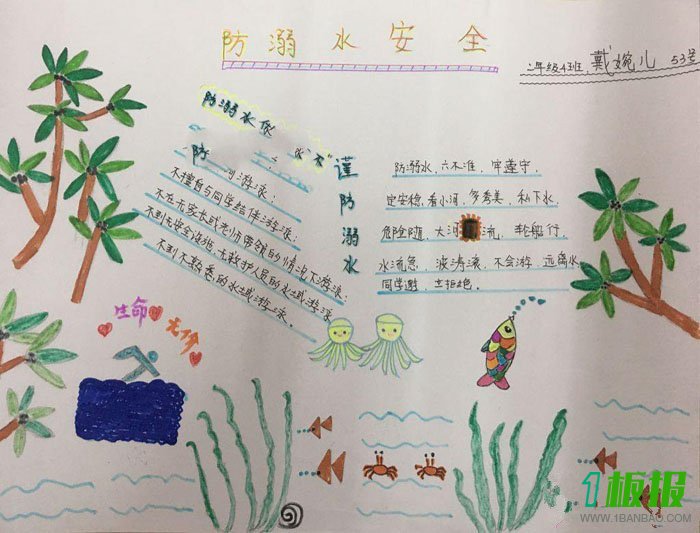 防溺水安全
二年级4班 戴婉儿 53号
防溺水
"不"
防 游泳;
不擅自与同学结伴游泳;
不在无家长或老师带领的情况下游泳;
不到无安全设施、无救护人员的水域游泳
不到不熟悉的水域游泳。
谨防溺水
防溺水,六不准,牢遵守,
看小河,多秀美,私下水,
危险随,大河 流,轮船行,
水流急,波涛滚,不会游,远离水
同学邀 拒绝。
生命 无价
1板报
WWW.1BANBAO.COM